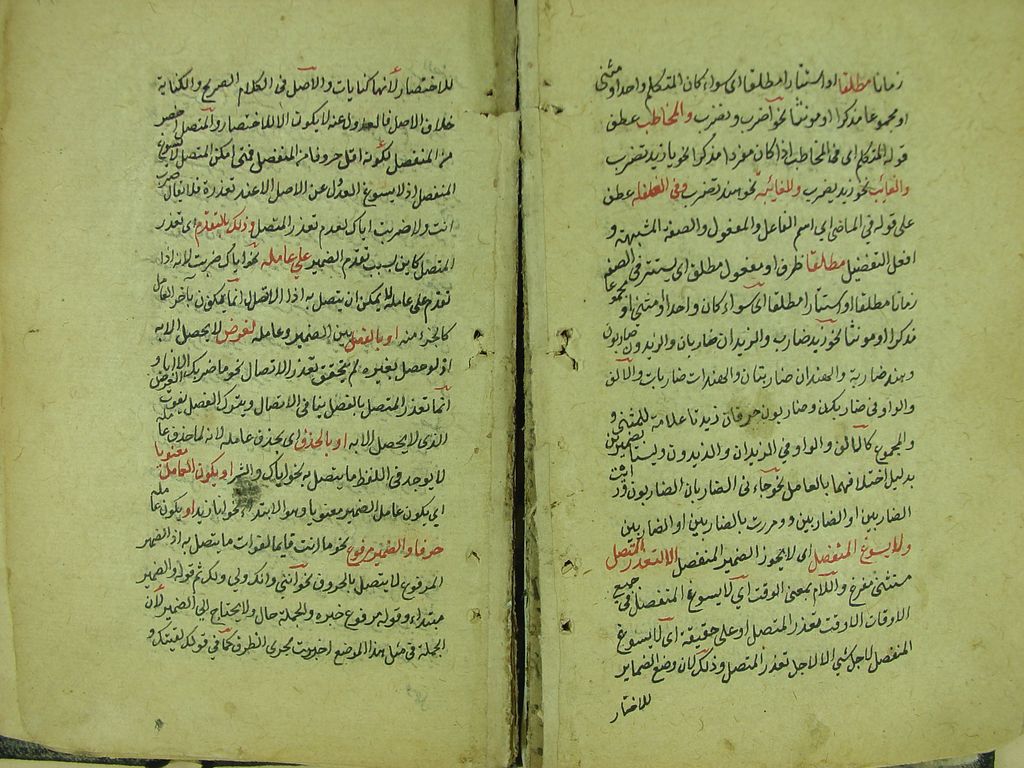 زمانا مطلقا او استتارا مطلقا اى سواء كان المتكلم واحدا او مثنى
او مجموعا مذكرا او مونثا نحو اضرب ونضرب والمخاطب عطف
قوله المتكلم اى فى المخاطب اذا كان مفردا مذكرا نحو يا زيد تضرب
والغائب نحو زيد يضرب وللغائبة نحو هند تضرب وفى الصفة عطف
على قوله فى الماضى اى اسم الفاعل والمفعول والصفة المشبهة و
افعل التفضيل مطلقا ظرف او مفعول مطلق اى يستتر فى الصفة
زمانا مطلقا او استتارا مطلقا اى سواء كان واحدا او مثنى او مجموعا
مذكرا او مونثا نحو زيد ضارب والزيدان ضاربان والزيدون ضاربون
وهند ضاربة والهندان ضاربتان والهندات ضاربات والالف
والواو فى ضاربان وضاربون حرفان زيدتا علامة للمثنى و
والمجموع كالالف والواو فى الزيدان والزيدون وليستا بضميرين
بدليل اختلافهما بالعامل نحو جاءنى الضاربان الضاربون ورايت
الضاربين او الضاربين ومررت بالضاربين او الضاربين
ولا يسوغ المنفصل اى لا يجوز الضمير المنفصل الا لتعذر المتصل
مستثنى مفرغ واللام بمعنى الوقت اى لا يسوغ المنفصل فى جميع
الاوقات الا وقت تعذر المتصل او على حقيقة اى لا يسوغ
المنفصل لاجل شئ الا لاجل تعذر المتصل وذلك لان وضع الضماير
للاختصار
للاختصار لانها كنايات والاصل فى الكلام الصريح والكناية
خلاف الاصل فالعدول عنه لا يكون الا للاختصار والمتصل اخصر
من المنفصل لكونه اقل حروفا من المنفصل فمتى امكن المتصل لا يسوغ
المنفصل اذ لا يسوغ العدول عن الاصل الا عند تعذره فلا يقال ضرب
انت ولا ضربت اياك لعدم تعذر المتصل وذلك بالتقدم اى تعذر
المتصل كاين بسبب تقدم الضمير على عامله نحو اياك ضربت لانه اذا
تقدم على عامله لا يمكن ان يتصل به اذ الاتصال انما يكون بآخر العامل
كالجزء منه او بالفصل بين الضمير وعامله لغرض لا يحصل الا به
اذ لو حصل بغيره لم يتحقق تعذر الاتصال نحو ما ضربك الا انا و
انما تعذر المتصل بالفصل لمنافى الاتصال وبترك الفصل يفوت الغرض
الذى لا يحصل الا به او بالحذف اى بحذف عامله لانه لما حذف عامله
لا يوجد فى اللفظ ما يتصل به نحو اياك والشر او بكون العامل معنويا
اى بكون عامل الضمير معنويا وهو الابتداء نحو انا زيد او بكون عامله
حرفا والضمير مرفوع نحو ما انت قائما لفوات ما يتصل به اذ الضمير
المرفوع لا يتصل بالحروف نحو اننى وانك ولى ولك ثم قوله والضمير
مبتداء وقوله مرفوع خبره والجملة حال ولا يحتاج الى الضمير لان
الجملة فى مثل هذا الموضع اجريت مجرى الظرف كما فى قولك لقيتك و